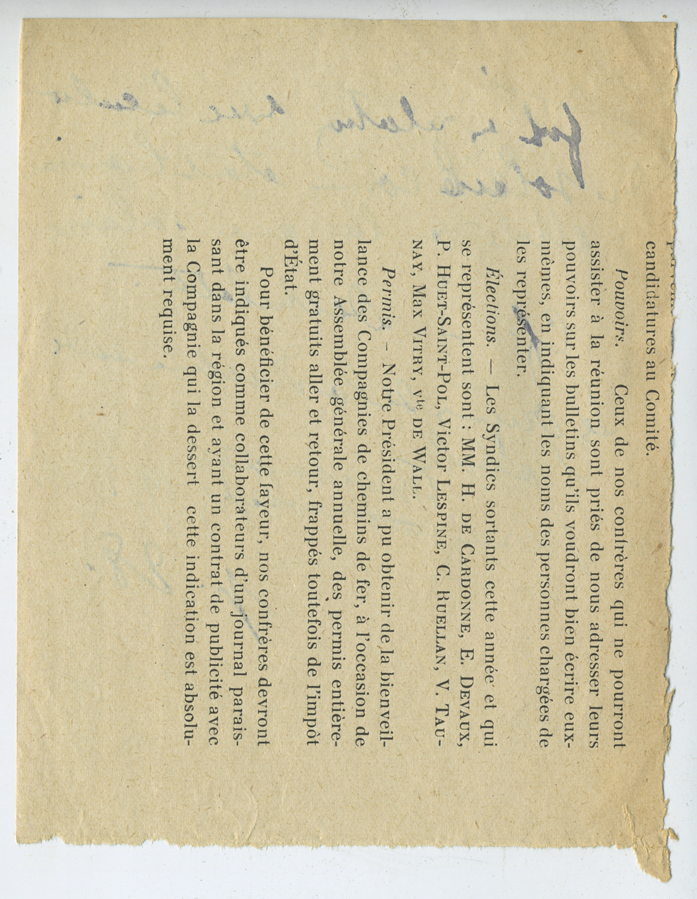 candidatures au Comité.
Pouvoirs. Ceux de nos confrères qui ne pourront
assister à la réunion sont priés de nous adresser leurs
pouvoirs sur les bulletins qu'ils voudront bien écrire eux-
mêmes, en indiquant les noms des personnes chargées de
les représenter.
Élections. — Les Syndics sortants cette année et qui
se représentent sont : MM. H. DE CARDONNE, E. DEVAUX,
P. HUET-SAINT-POL, Victor LESPINE, C. RUELLAN, V. TAU-
NAY, Max VITRY, vte DE WALL.
Permis. — Notre Président a pu obtenir de la bienveil-
lance des Compagnies de chemins de fer, à l'occasion de
notre Assemblée générale annuelle, des permis entière-
ment gratuits aller et retour, frappés toutefois de l'impôt
d'État.
Pour bénéficier de cette faveur, nos confrères devront
être indiqués comme collaborateurs d'un journal parais-
sant dans la région et ayant un contrat de publicité avec
la Compagnie qui la dessert cette indication est absolu-
ment requise.